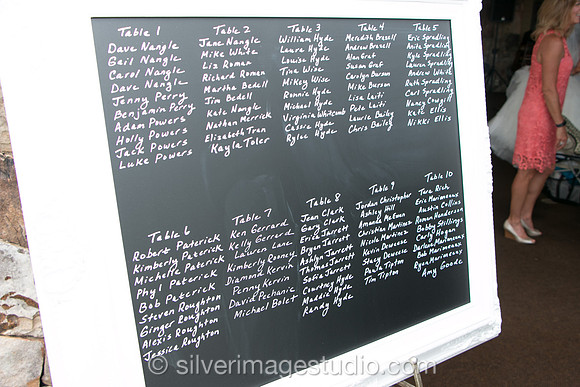 Table 1
Dave Nangle
Gail Nangle
Carol Nangle
Dave Nangle
Jenny Perry
Benjamin Perry
Adam Powers
Holly Powers
Jack Powers
Luke Powers
Table 2
Jane Nangle
Mike White
Liz Roman
Richard Roman
Martha Bedell
Jim Bedell
Kate Nangle
Nathan Merrick
Elizabeth Tran
Kayla Toler
Table 3
William Hyde
Laura Hyde
Louise Hyde
Tina Wise
Mikey Wise
Ronnie Hyde
Michael Hyde
Virginia Whitcomb
Cassie Hyde
Rylee Hyde
Table 4
Meredith Brazell
Andrew Brazell
Alan Graf
Susan Graf
Carolyn Burson
Mike Burson
Lisa Laiti
Pete Laiti
Laurie Bailey
Chris Bailey
Table 5
Eric Spradling
Anita Spradling
Kyle Spradling
Lauren Spradling
Andrew White
Ruth Spradling
Carl Spradling
Nancy Cowgill
Kate Ellis
Nikki Ellis
Table 6
Robert Patrick
Kimberly Patrick
Michelle Patrick
Phyl Patrick
Bob Patrick
Steven Roughton
Ginger Roughton
Alexis Roughton
Jessica Roughton
Table 7
Ken Gerrard
Kelly Gerrard
Lauren Lane
Kimberly Rooney
Diamond Kervin
Penny Kervin
David Pechanic
Michael Bolet
Table 8
Jean Clark
Gary Clark
Erica Jarrett
Bryan Jarrett
Ashlyn Jarrett
Thomas Jarrett
Sofia Jarrett
Courtney Hyde
Maddie Hyde
Randy Hyde
Table 9
Jordan Christopher
Ashley Hill
Amanda McEwan
Christian Martinez
Nicole Martinez
Kevin Deweese
Stacy Deweese
Paula Tipton
Tim Tipton
Table 10
Tara Rich
Eric Marimeaux
Austin Collins
Roman Henderson
Bobby Stillings
Carly Hogan
Darlene Marimeaux
Bob Marimeaux
Ryan Marimeaux
Amy Goode
© silverimagestudio.com ©